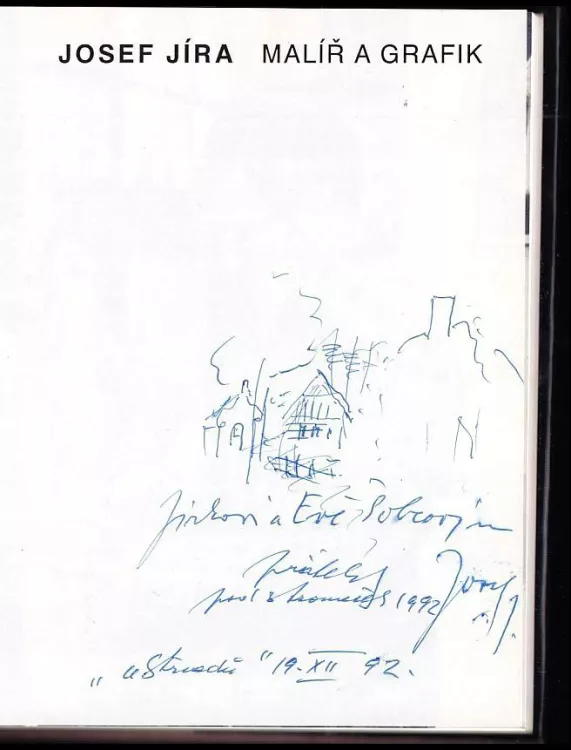 JOSEF JÍRA MALÍŘ A GRAFIK
Jirkovi a Evě Šobrovým
přátelsky
pod stromeček 1992
19. XII 92.